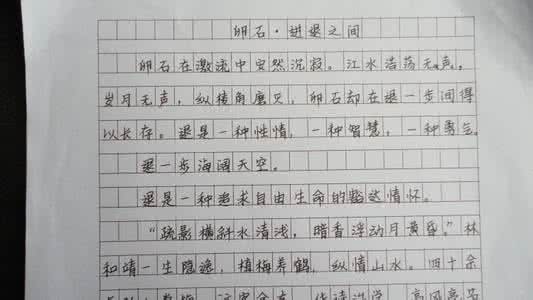 卵石·进退之间
卵石在激流中安然沉寂。江水浩荡无声。
岁月无声，纵棱角磨灭，卵石却在退一步间得
以长存。退是一种性情，一种智慧，一种勇气。
退一步海阔天空。
退是一种追求自由生命的豁达情怀。
“疏影横斜水清浅，暗香浮动月黄昏。”林
和靖一生隐逸，植梅养鹤，纵情山水。四十余